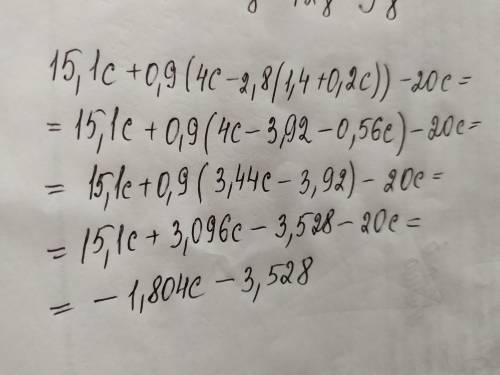 15,1c + 0,9(4c - 2,8(1,4 + 0,2c)) - 20c =
= 15,1c + 0,9(4c - 3,92 - 0,56c) - 20c =
= 15,1c + 0,9(3,44c - 3,92) - 20c =
= 15,1c + 3,096c - 3,528 - 20c =
= - 1,804c - 3,528